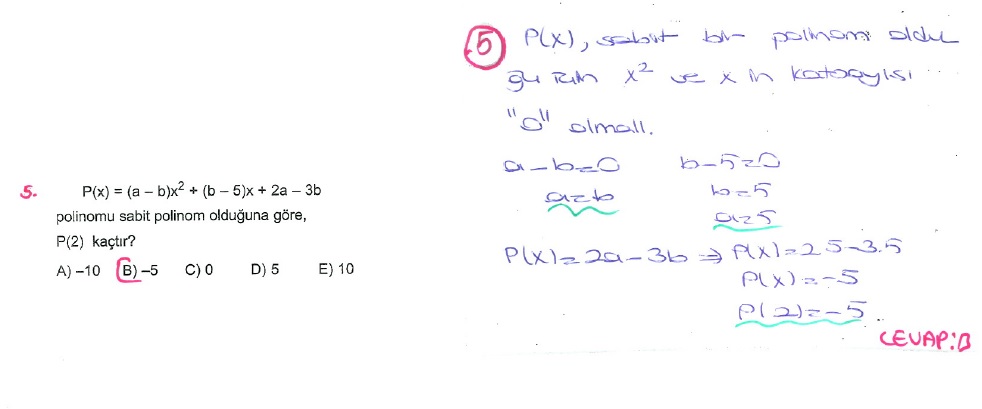 5. P(x) = (a – b)x² + (b – 5)x + 2a – 3b
polinomu sabit polinom olduğuna göre,
P(2) kaçtır?
A) –10 B) –5 C) 0 D) 5 E) 10
5 P(x), sabit bir polinom oldu
ğu için x² ve x in katsayısı
"0" olmalı.
a-b=0 b-5=0
a=b b=5
a=5
P(x)=2a-3b ⇒ P(x)=2.5-3.5
P(x)=-5
P(2)=-5
CEVAP:B